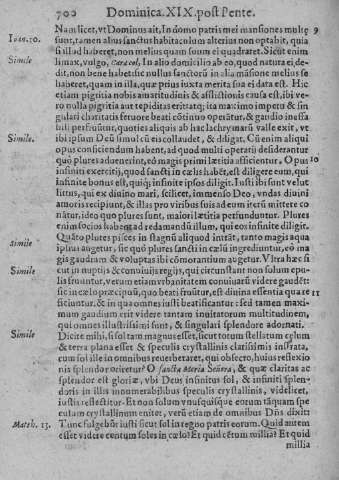 700 Dominica.XIX.post Pente.
Nam licet, vt Dominus ait, In domo patris mei mansiones multæ 9
Ioan.10. sunt, tamen alius sanctus habitaculum alterius non optabit, quia
si illad haberet, non melius quam suum ei quadraret. Sicut enim
Simile limax, vulgo, Caracol. In alio domicilio ab eo, quod natura ei de-
dit, non bene habet: sic nullus sanctorũ in alia mãsione melius se
haberet, quam in illa, quæ prius iuxta merita sua ei data est. Hic
etiam pigritia nobis amaritudinis & afflictionis causa est, ibi ve-
ro nulla pigritia aut tepiditas erit: atq; ita maximo impetu & sin-
gulari charitatis feruore beati cõtinuo operãtur, & gaudio ineffa-
bili perfruũtur, quoties aliquis ab hac lachrymarũ valle exit, vt
Simile. ibi ipsum Deũ simul cũ eis collaudet, & diligat. Cũ enim aliqui
opus conficiendum habent, ad quod multi operarij desiderantur
quo plures aduenerint, eò magis primi lætitia afficiuntur. Opus 10
infiniti exercitij, quod sancti in cælis habẽt, est diligere eum, qui
infinite bonus est, quiq; infinite ipsos diligit. Iusti ibi sunt velut
littus, qui ex diuino mari, scilicet, immenso Deo, vndas diuini
amoris recipiunt, & illas pro viribus suis ad eum iterũ mittere co
nãtur, ideo quo plures sunt, maiori lætitia perfunduntur. Plures
enim socios habent ad redamandũ illum, qui eos infinite diligit.
Quãto plures pisces in stagnũ aliquod intrãt, tanto magis aqua
simile ipsius augetur, sic quò plures sancti in cælũ ingrediuntur, eò ma
gis gaudium & voluptas ibi cõmorantium augetur. Vltra hæc si
Simile cut in nuptijs & conuiuijs regijs, qui circumstant non solum epu-
lis fruuntur, verum etiam vrbanitatem conuiuarũ videre gaudẽt:
sic in cælo præcipuũ, quo beati fruũtur, est diuina essentia quare 11
ficiuntur, & in qua omnes iusti beatificantur: sed tamen maxi-
mum gaudium erit videre tantam inuitatorum multitudinem,
qui omnes illustrissimi sunt, & singulari splendore adornati.
Simile Dicite mihi, si sol tam magnus esset, sicut totum stellatum cælum
& terra plana esset & speculis crystallinis clarissimis instrata,
cum sol ille in omnibus reuerberaret, qui obsecro, huius reflexio
nis splendor oriretur? O sancta Maria Señora, & quæ claritas ac
splendor est gloriæ, vbi Deus infinitus sol, & infiniti splen-
doris in illis innumerabilibus speculis crystallinis, videlicet,
iustis reflectitur. Et non solum vnusquisque eorum tãquam spe
culum crystallinum enitet, verũ etiam de omnibus Dñs dixit:
Matth. 13. Tunc fulgebũt iusti sicut sol in regno patris eorum. Quid autem
esset videre centum soles in cælo? Et quid cẽtum millia? Et quid
millia